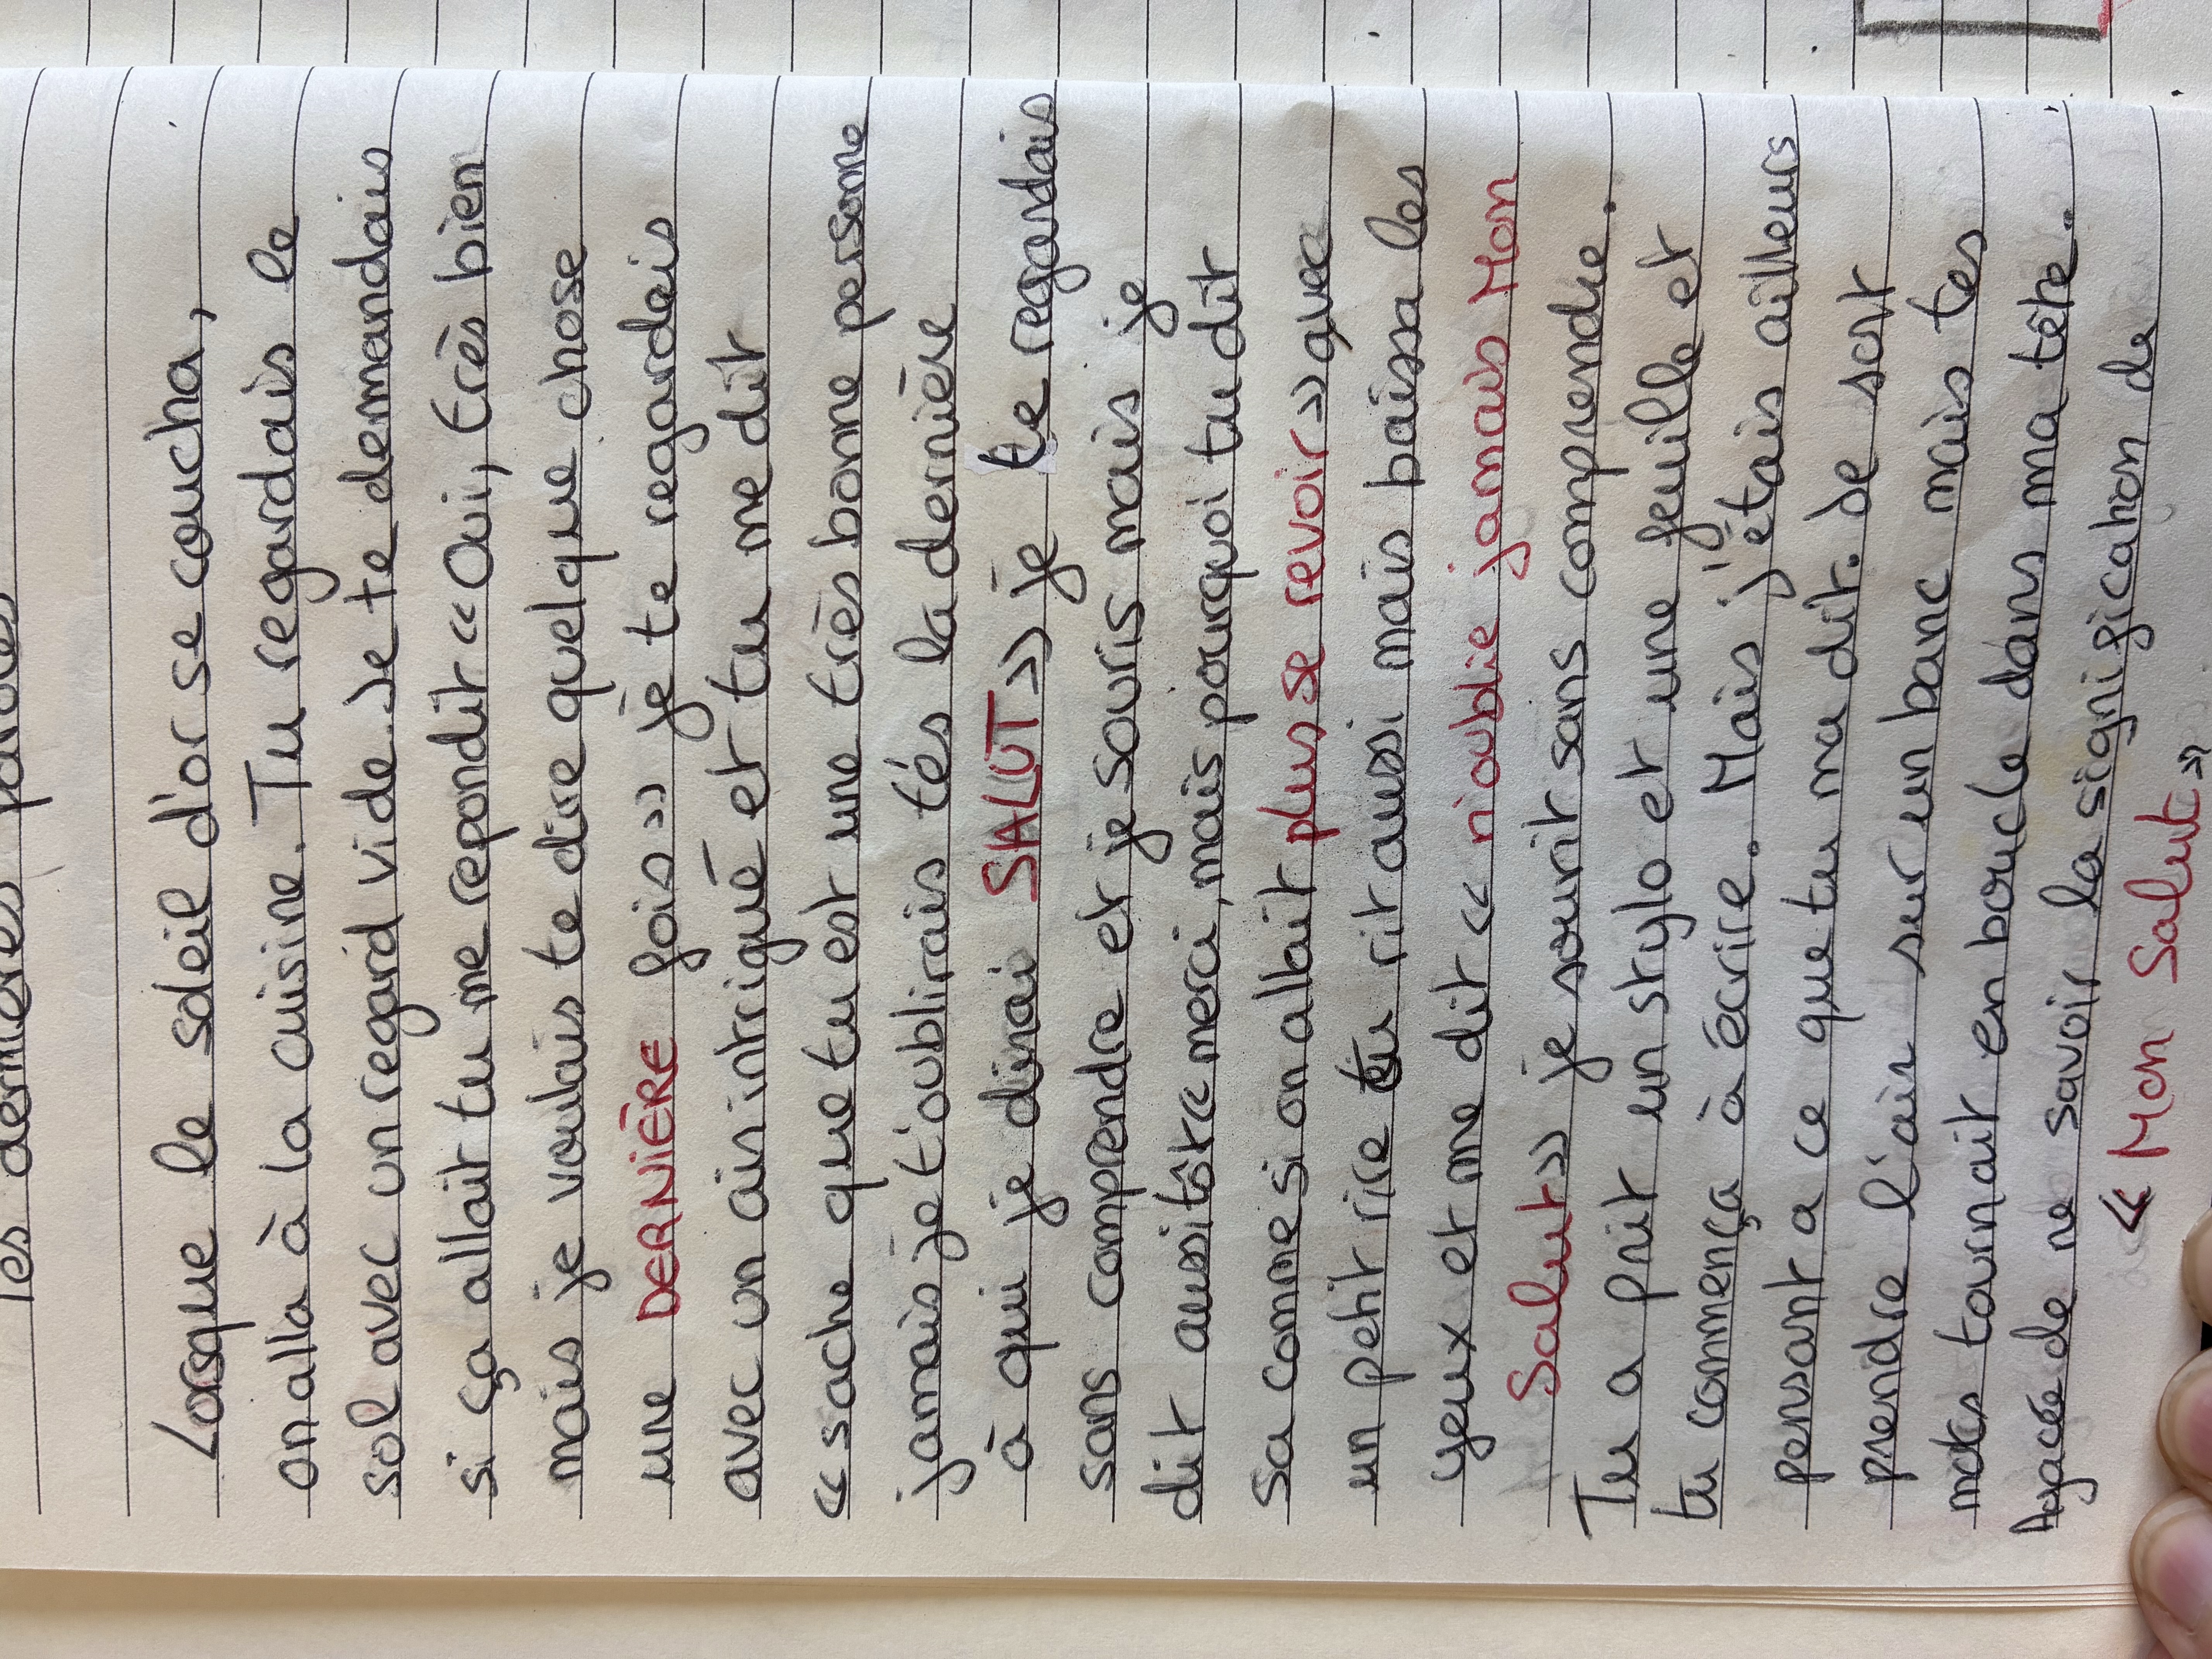 Tes dernières paroles
Lorsque le soleil d'or se coucha,
on alla à la cuisine. Tu regardais le
sol avec un regard vide. Je te demandais
si ça allait tu me repondit « Oui, très bien
mais je voulais te dire quelque chose
une DERNIÈRE fois » je te regardais
avec un air intrigué et tu me dit
« sache que tu est une très bonne personne
jamais je t'oublirais t'és la dernière
à qui je dirai SALUT » je te regardais
sans comprendre et je souris mais je
dit aussitôt « merci, mais pourquoi tu dit
sa comme si on allait plus se revoir » avec
un petit rire tu rit aussi mais baissa les
yeux et me dit « n'oublie jamais Mon
Salut » je sourit sans comprendre.
Tu a prit un stylo et une feuille et
tu commença à écrire. Mais j'étais ailleurs
pensant a ce que tu ma dit. Je sort
prendre l'air sur un banc mais tes
mots tournait en boucle dans ma tête.
Agacée de ne savoir la signification de
« Mon Salut »